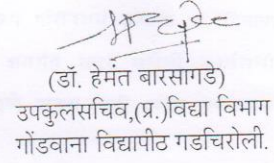 (डॉ. हेमंत बारसागडे)
उपकुलसचिव,(प्र.)विद्या विभाग
गोंडवाना विद्यापीठ गडचिरोली.